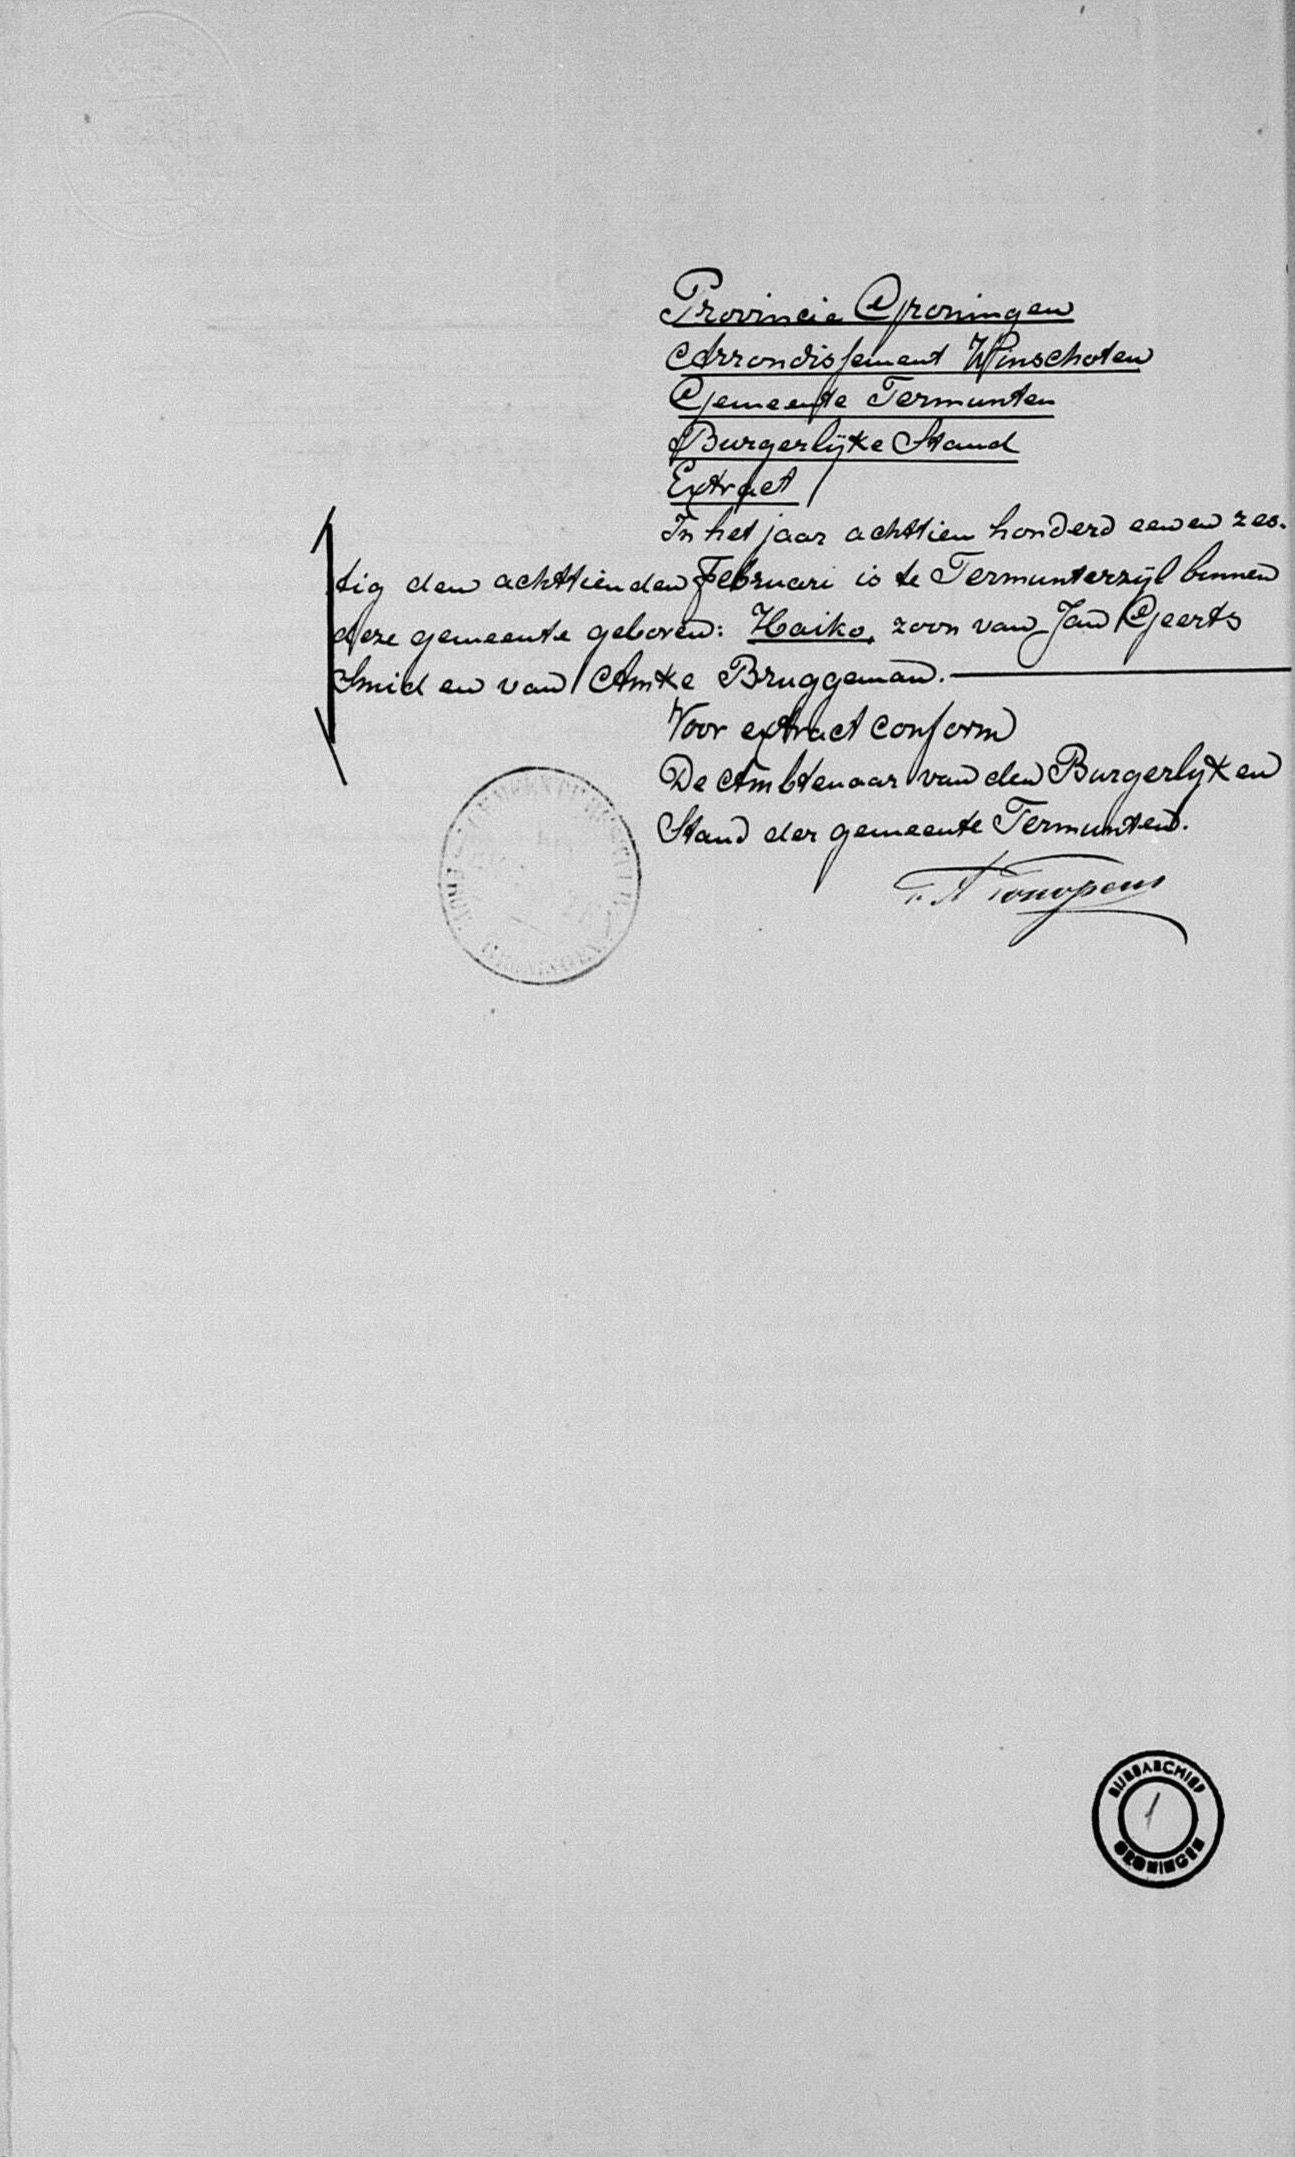 Provincie Groningen
Arrondissement Winschoten
Gemeente Termunten
Burgerlijke Stand
Extract
In het jaar achttien honderd een en zes-
tig den achttienden Februari is te Termunterzijl binnen
deze gemeente geboren: Haiko, zoon van Jan Geerts
Smid en van Amke Bruggeman.
Voor extract conform
De Ambtenaar van den Burgerlijken
Stand der gemeente Termunten.
RIJKSARCHIEF
1
GRONINGEN